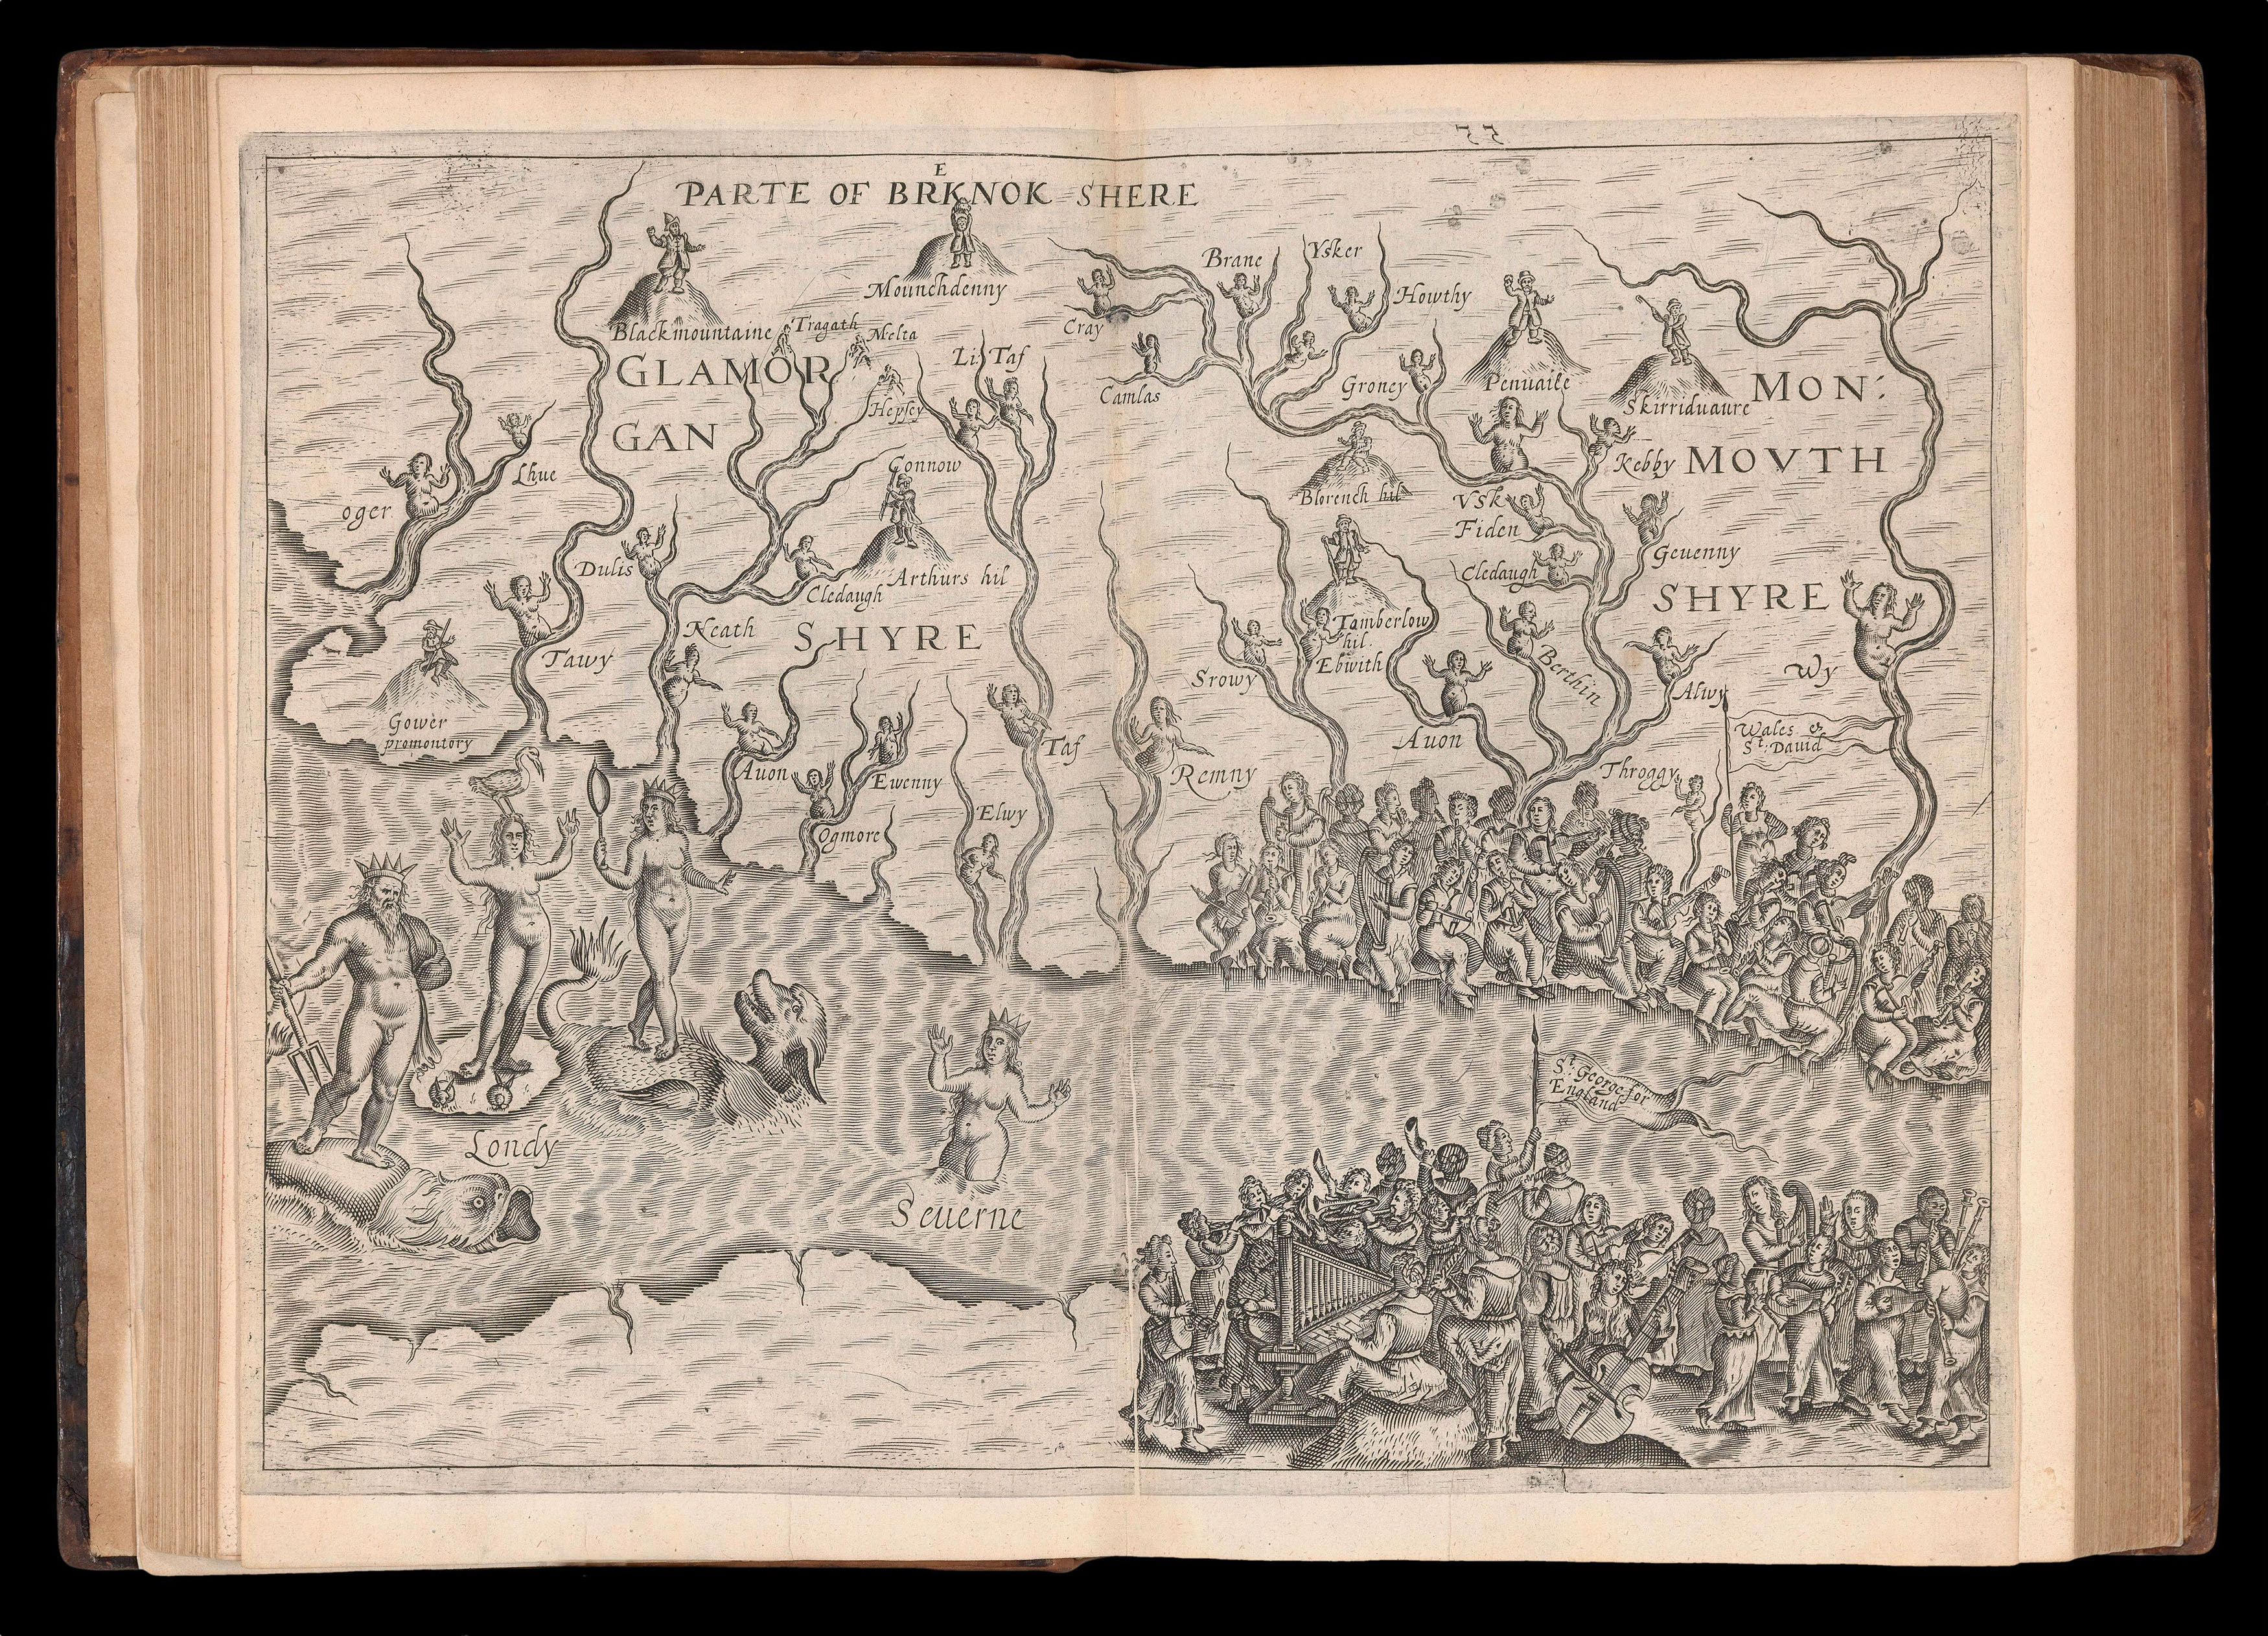 55
E
PARTE OF BRKNOK SHERE
Mounchdenny
Blackmountaine
Tragath
Melta
Hepsey
GLAMOR
GAN
SHYRE
Li
Taf
Brane
Ysker
Howthy
Cray
Camlas
Groney
Penuaile
Skirriduaure
MON:
MOVTH
SHYRE
Kebby
Blorench hil
Vsk
Fiden
Geuenny
Cledaugh
oger
Lhue
Connow
Dulis
Cledaugh
Arthurs hil
Neath
Tawy
Gower
promontory
Auon
Ewenny
Ogmore
Elwy
Taf
Remny
Srowy
Tamberlow
hil.
Ebwith
Auon
Berthin
Alwy
Wy
Throggy
Wales &
St: Dauid
St: George for
England
Londy
Seuerne